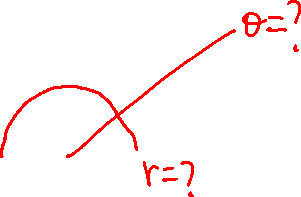 θ=?
r=?